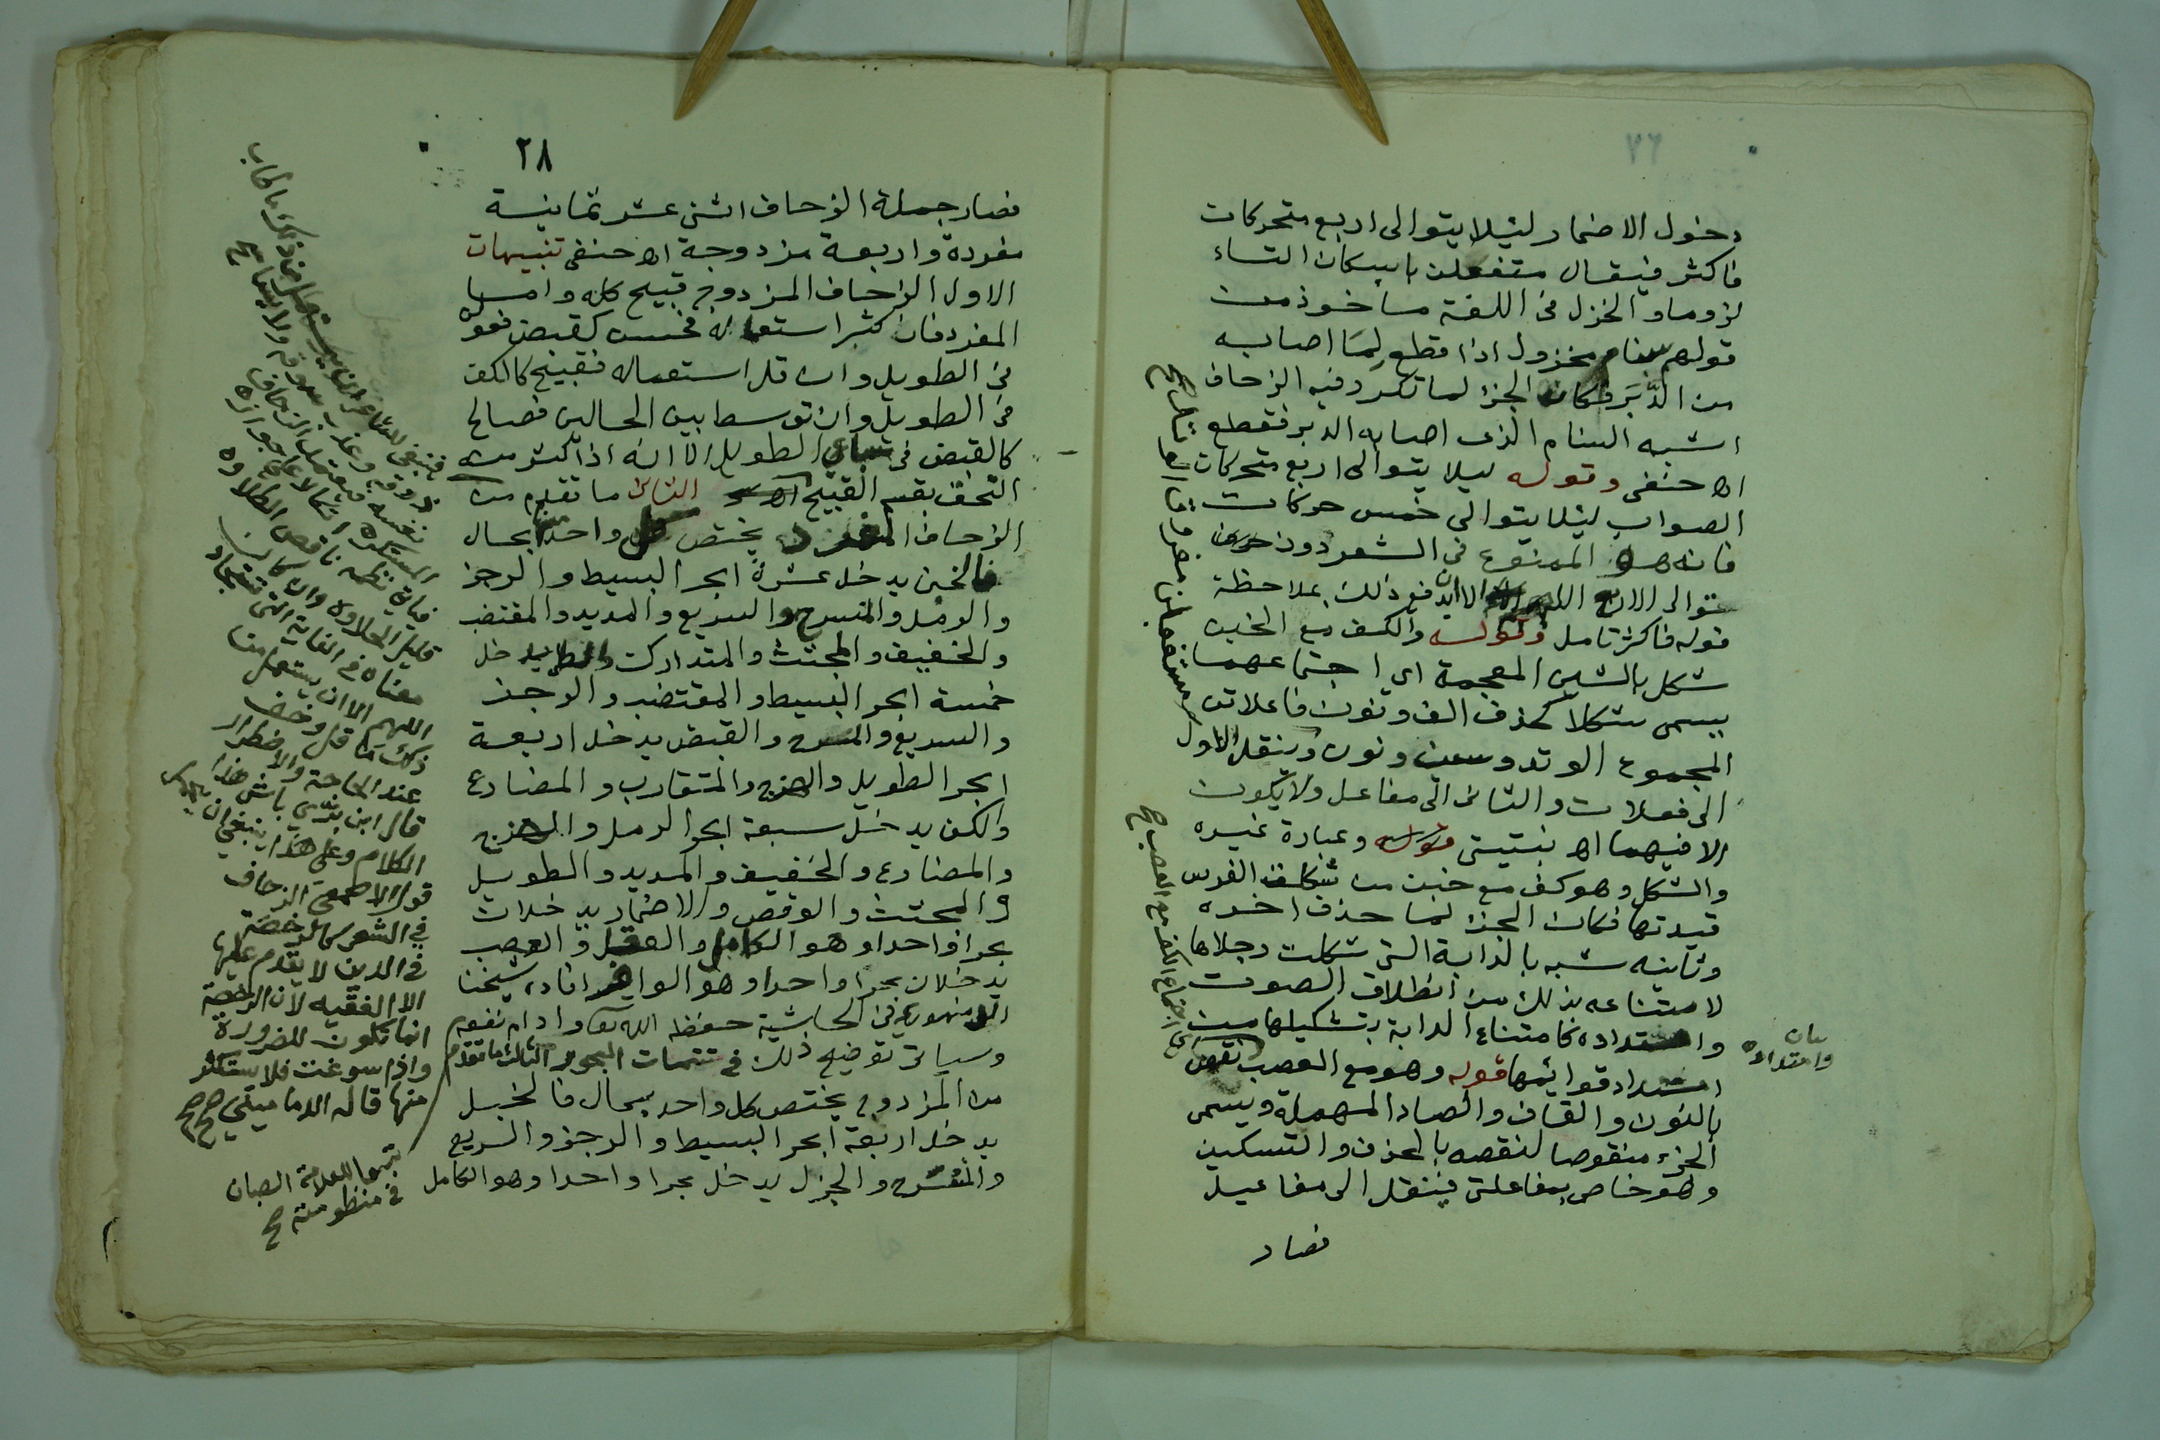 دخول الاضمار ليئلا يتوالى اربع متحركات
فاكثر فيقال متفعلن باسكان التاء
لزوما والخزل في اللغة ماخوذ من
قولهم سنام مخزول اذا قطع لما اصابه
من الدَّبَر فكان الجزء لما تكرر فيه الزحاف
اشبه السنام الذي اصابه الدبر فقطع
اه حنفي وقوله ليلا يتوالى اربع متحركات
الصواب ليئلا يتوالى خمس حركات
فانه هو الممنوع في الشعر دون
توالي الاربع اللهم الا ان يدفع ذلك بملاحظة
قوله فاكثر تامل وقوله والكف مع الخبن
شكل بالشين المعجمة اي اجتماعهما
يسمى شكلا كحذف الف ونون فاعلاتن
المجموع الوتد وسين ونون وينقل الاول
الى فعلات والثاني الى مفاعل ولا يكون
الا فيهما اه نبتيتي قوله وعبارة غيره
والشكل وهو كف مع خبن من شكلت الفرس
قيدتها فكان الجزء لما حذف اخره
وثانيه شبه بالدابة التي شكلت رجلاها
لامتناعه بذلك من انطلاق الصوت
وامتداده كامتناع الدابة بتشكيلها من
امتداد قوايمها قوله وهو مع العصب نقص
بالنون والقاف والصاد المهملة ويسمى
الجزء منقوصا لنقصه بالحذف والتسكين
وهو خاص بمفاعلتن فينقل الى مفاعيل
فصار
بيان
وامتداده
اي اجتماع الكف مع العصب صح
٢٨
فصار جملة الزحاف اثنى عشر ثمانية
مفردة واربعة مزدوجة اه حنفي تنبيهات
الاول الزحاف المزدوج قبيح كله واما
المفرد فان كثر استعماله فحسن كقبض فعولن
في الطويل وان قل استعماله فقبيح كالكف
في الطويل وان توسط بين الحالين فصالح
كالقبض في سباعي الطويل الا انه اذا كثر منه
التحق بقسم القبيح الثاني ما تقدم من
الزحاف المفرد يختص كل واحد منها بحال
فالخبن يدخل عشرة ابحر البسيط والرجز
والرمل والمنسرح والسريع والمديد والمقتضب
والخفيف والمجتث والمتدارك والطي يدخل
خمسة ابحر البسيط والمقتضب والرجز
والسريع والمنسرح والقبض يدخل اربعة
ابحر الطويل والهزج والمتقارب والمضارع
والكف يدخل سبعة ابحر الرمل والهزج
والمضارع والخفيف والمديد والطويل
والمجتث والوقص والاضمار يدخلان
بحرا واحدا وهو الكامل والعقل والعصب
يدخلان بحرا واحدا وهو الوافر افاده شيخنا
الدمنهوري في الحاشية حفظه الله تعا وادام نفعه
وسياتي توضيح ذلك في تتمات البحور الثالث ما تقدم
من المزدوج يختص كل واحد بحال فالخبل
يدخل اربعة ابحر البسيط والرجز والسريع
والمنسرح والجزل يدخل بحرا واحدا وهو الكامل
فينبغي للشاعر
المستكره اتكالا على جوازه
فياتي نظمه ناقص الطلاوه
قليل الحلاوه وان كان
معناه في الغاية التي تستجاد
اللهم الا ان يستعمل من
ذلك ما قل وخف
عند الحاجة والاضطرار
قال ابن بري باثر هذا
الكلام وعلى هذا ينبغي ان يحمل
قول الاصمعي الزحاف
في الشعر كالرخصة
في الدين لا يقدم عليها
الا الفقيه لان الرخصة
انما تكون للضرورة
واذا سوغت فلا يستكثر
منها قاله الدماميني صح
تبعها العلامة الصبان
في منظومته صح